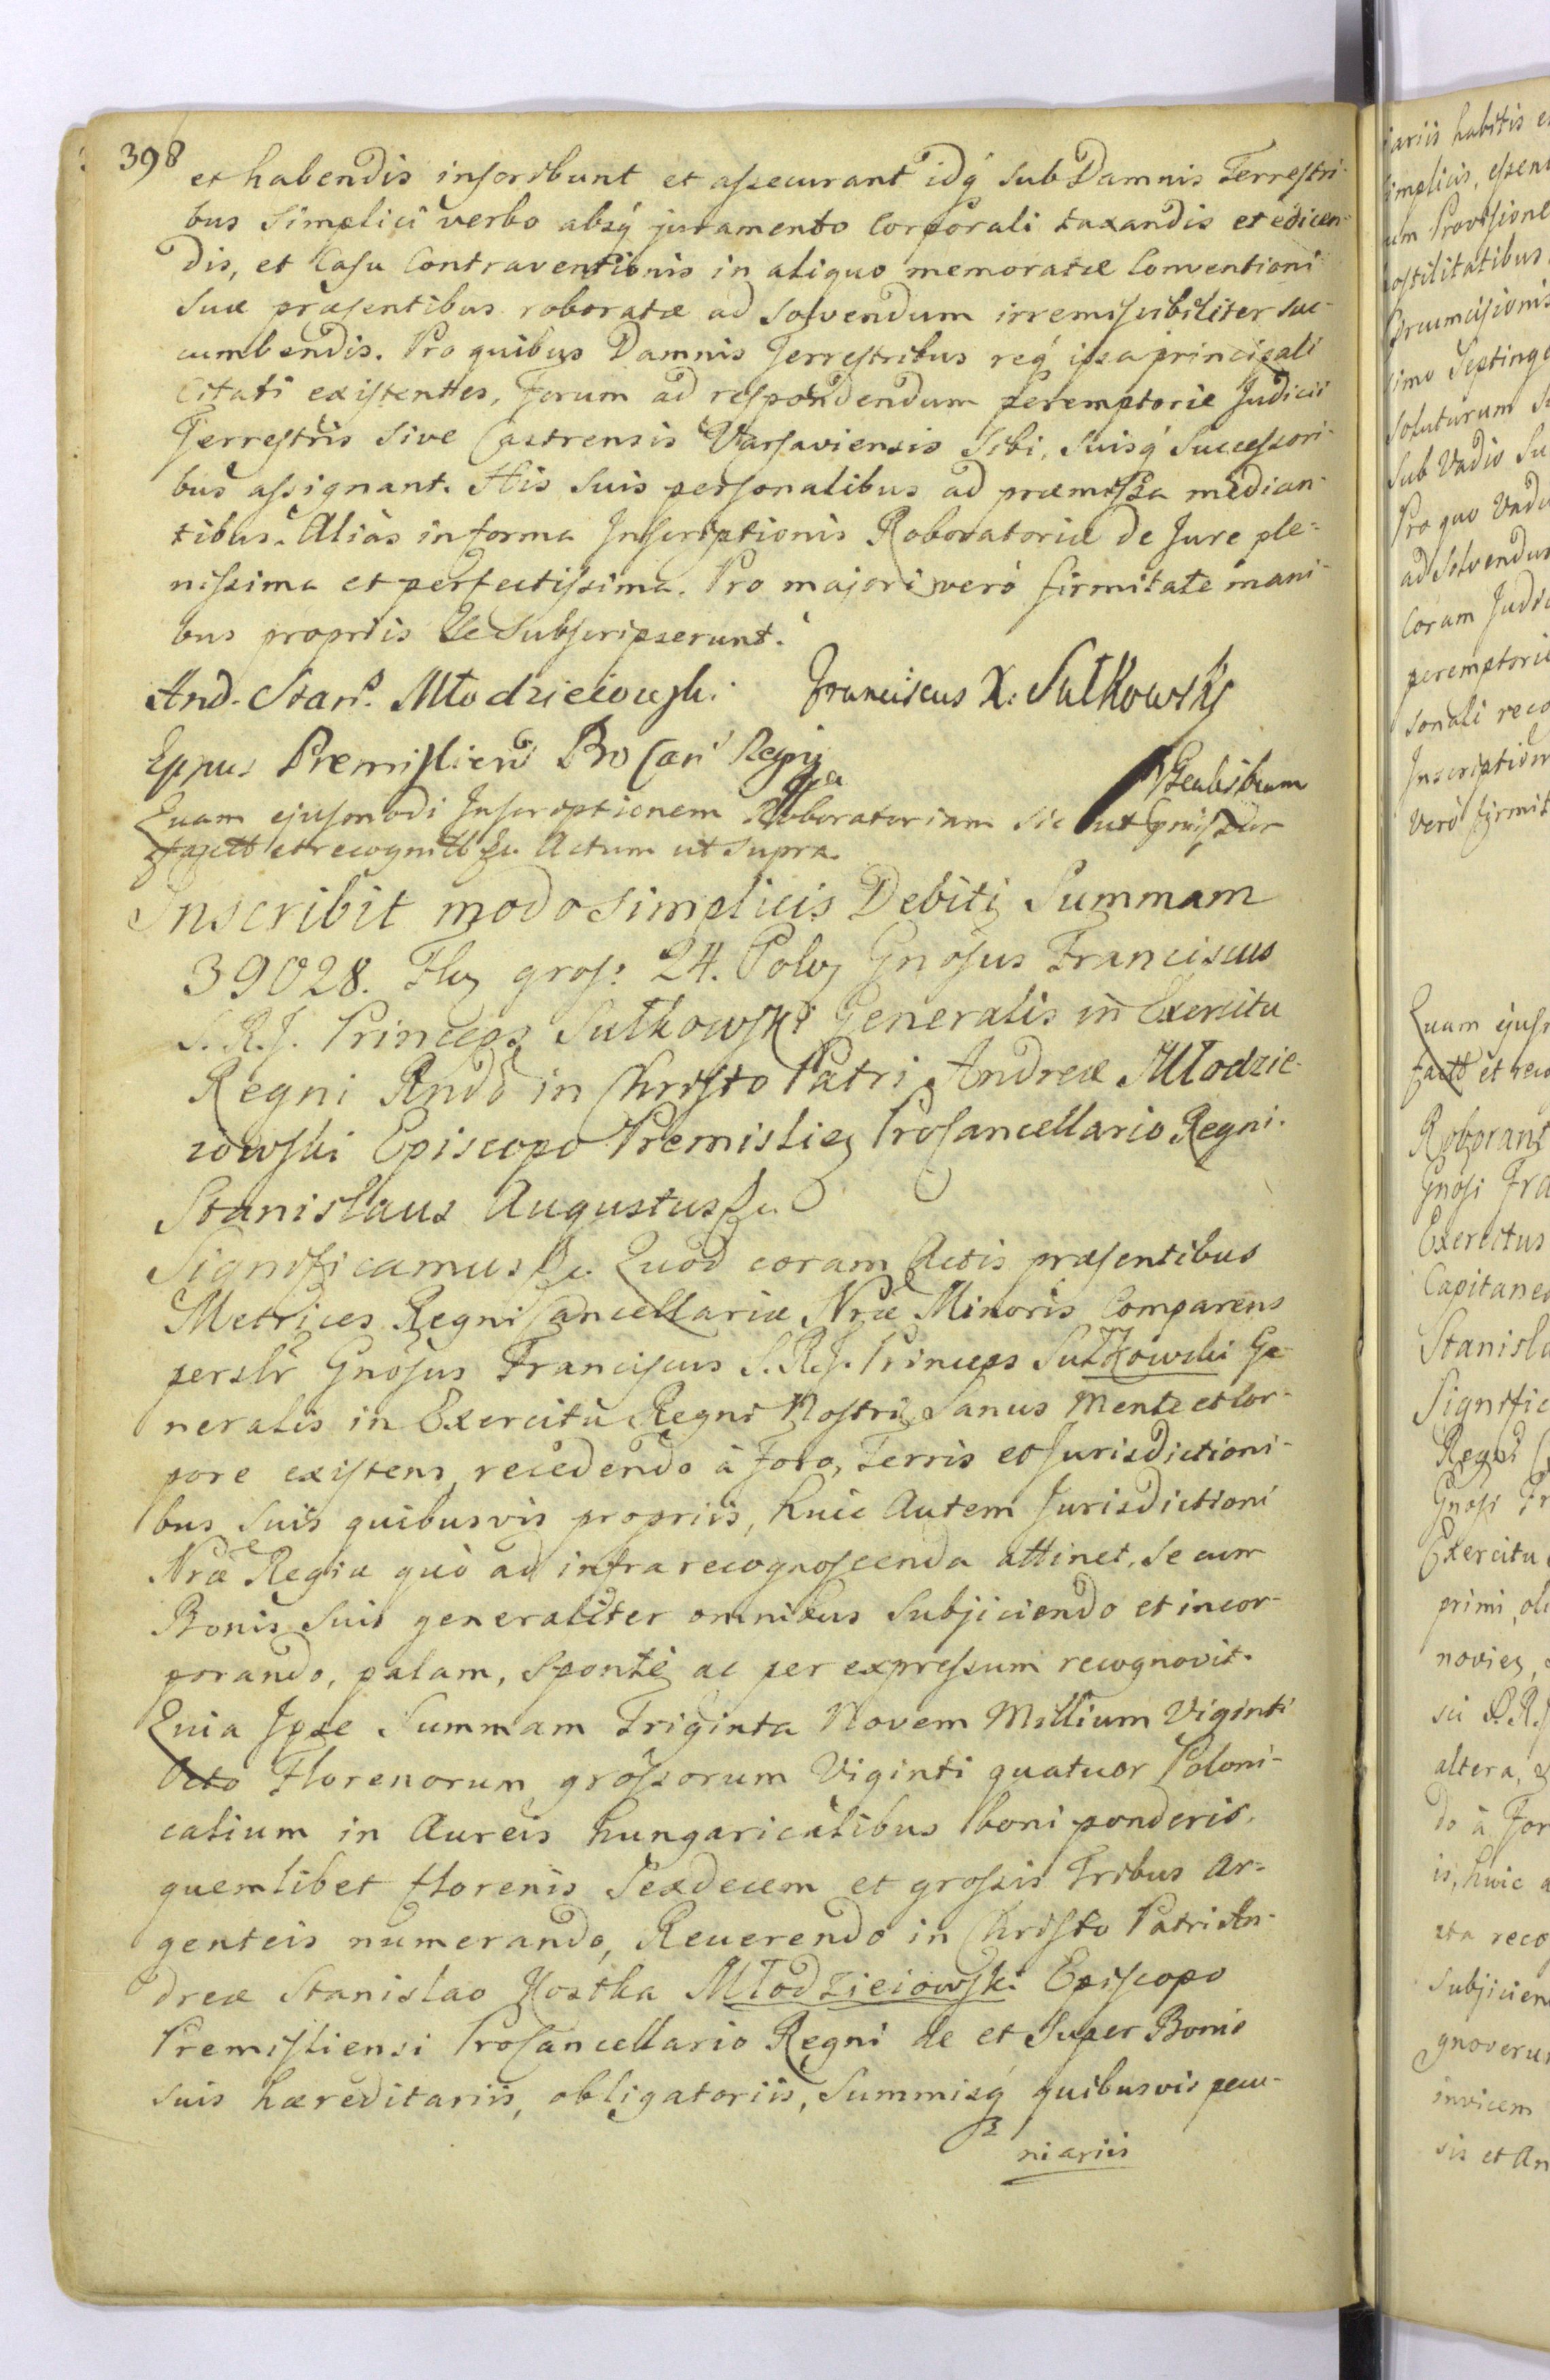 398
et habendis inscribunt et assecurant idq́ sub Damnis Terrestri-
bus simplici verbo absq́ juramento Corporali taxandis et edicen-
dis, et Casu Contraventionis in aliquo memoratæ Conventioni
suæ præsentibus roboratæ ad solvendum irremissibiliter suc-
cumbendis. Pro quibus Damnis Terrestribus req́ ipsa principali
Citati existentes, forum ad respondendum peremptorie Judicii
Terrestris sive Castrensis Varsaviensis Sibi, suisq́ Successori-
bus assignant. His suis personalibus ad præmissa median-
tibus. Alias in forma Inscriptionis Roboratoriæ de Jure ple=
nissima et perfectissima. Pro majori verò firmitate mani-
bus propriis se subscripserunt.
And. Stans. Młodzieiowski. Franciscus X. Sułkowski
Eppus Premislien Pro Can Regni
Quam ejusmodi Inscriptionem Roboratoriam sic ut
et recognit &c. Actum ut supra.
Inscribit modo simplicis Debiti Summam
39028. Flor gros: 24. Polor Gnosus Franciscus
S. R. J. Princeps Sułkowski Generalis in Exercitu
Regni Rndo in Christo Patri Andreæ Młodzie-
iowski Episcopo Premislien Procancellario Regni.
Stanislaus Augustus &c.
Significamus &c. Quod coram Actis præsentibus
Metrices Regni Cancellariæ Nræ Minoris Comparens
perslr Gnosus Franciscus S. R. J. Princeps Sułkowski Ge-
neralis in Exercitu Regni Nostri, Sanus Mente et Cor-
pore existens, recedendo à Foro, Terris et Jurisdictioni-
bus suis quibusvis propriis, huic Autem Jurisdictioni
Nræ Regiæ quò ad infra recognoscenda attinet, se cum
Bonis suis generaliter omnibus subjiciendo et incor-
porando, palam, sponte ac per expressum recognovit.
Quia Ipse Summam Triginta Novem Millium Viginti
Octo Florenorum grossorum Viginti quatuor Poloni-
calium in Aureis hungaricalibus boni ponderis,
quemlibet florenis Sexdecem et grossis Tribus Ar=
genteis numerando, Reverendo in Christo Patri An-
dreæ Stanislao Kostka Młodzieiowski Episcopo
Premisliensi Procancellario Regni de et super Bonis
suis hæreditariis, obligatoriis, Summisq́ quibusvis pecu-
niariis